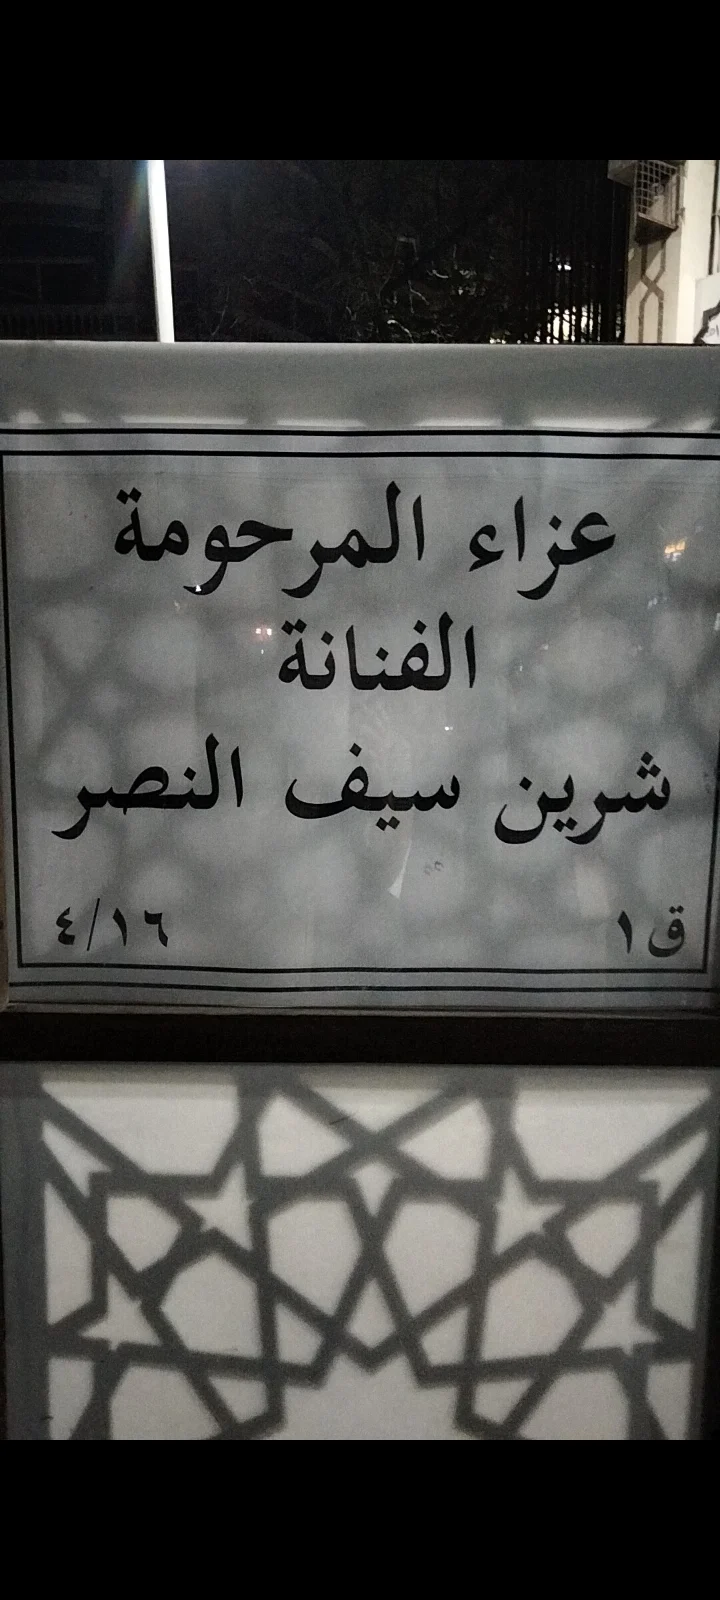 عزاء المرحومة
الفنانة
شرين سيف النصر
ق ١ ١٦/٤